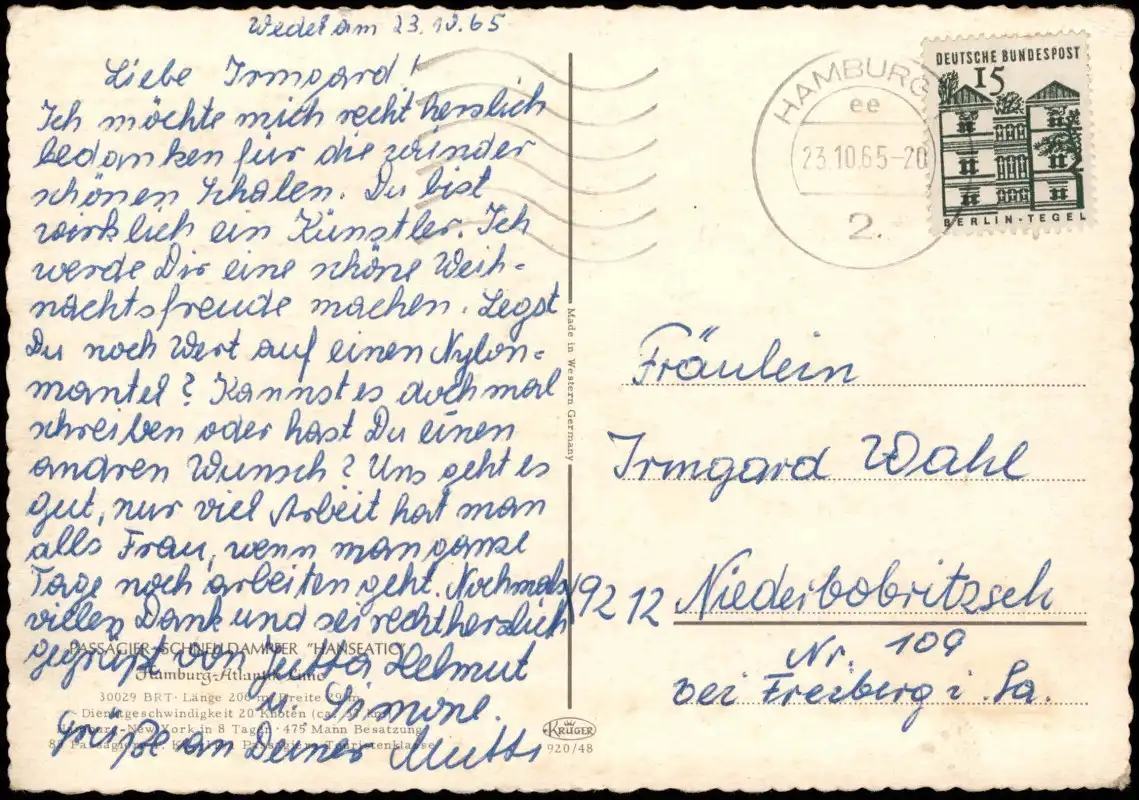 Wedel am 23.10.65
Liebe Irmgard!
Ich möchte mich recht herzlich
bedanken für die wunder
schönen Schalen. Du bist
wirklich ein Künstler. Ich
werde Dir eine schöne Weih-
nachtsfreude machen. Legst
Du noch Wert auf einen Nylon-
mantel? Kannst es doch mal
schreiben oder hast Du einen
andren Wunsch? Uns geht es
gut, nur viel Arbeit hat man
alls Frau, wenn man ganze
Tage noch arbeiten geht. Nochmals
villen Dank und sei recht herzlich
gegrüßt von Jutta Helmut
u. Simone.
Grüße an Deiner Mutti
PASSAGIER-SCHNELLDAMPFER "HANSEATIC"
Hamburg-Atlantik Linie
30029 BRT · Länge 206 m Breite 29 m
Dienstgeschwindigkeit 20 Knoten (ca.
Hamburg-New York in 8 Tagen · 475 Mann Besatzung
Passagiere Touristenklasse
Made in Western Germany
KRÜGER
920/48
HAMBURG
ee
23.10.65-20
2.
DEUTSCHE BUNDESPOST
15
BERLIN-TEGEL
Fräulein
Irmgard Wahl
9212 Niederbobritzsch
Nr. 109
bei Freiberg i. Sa.